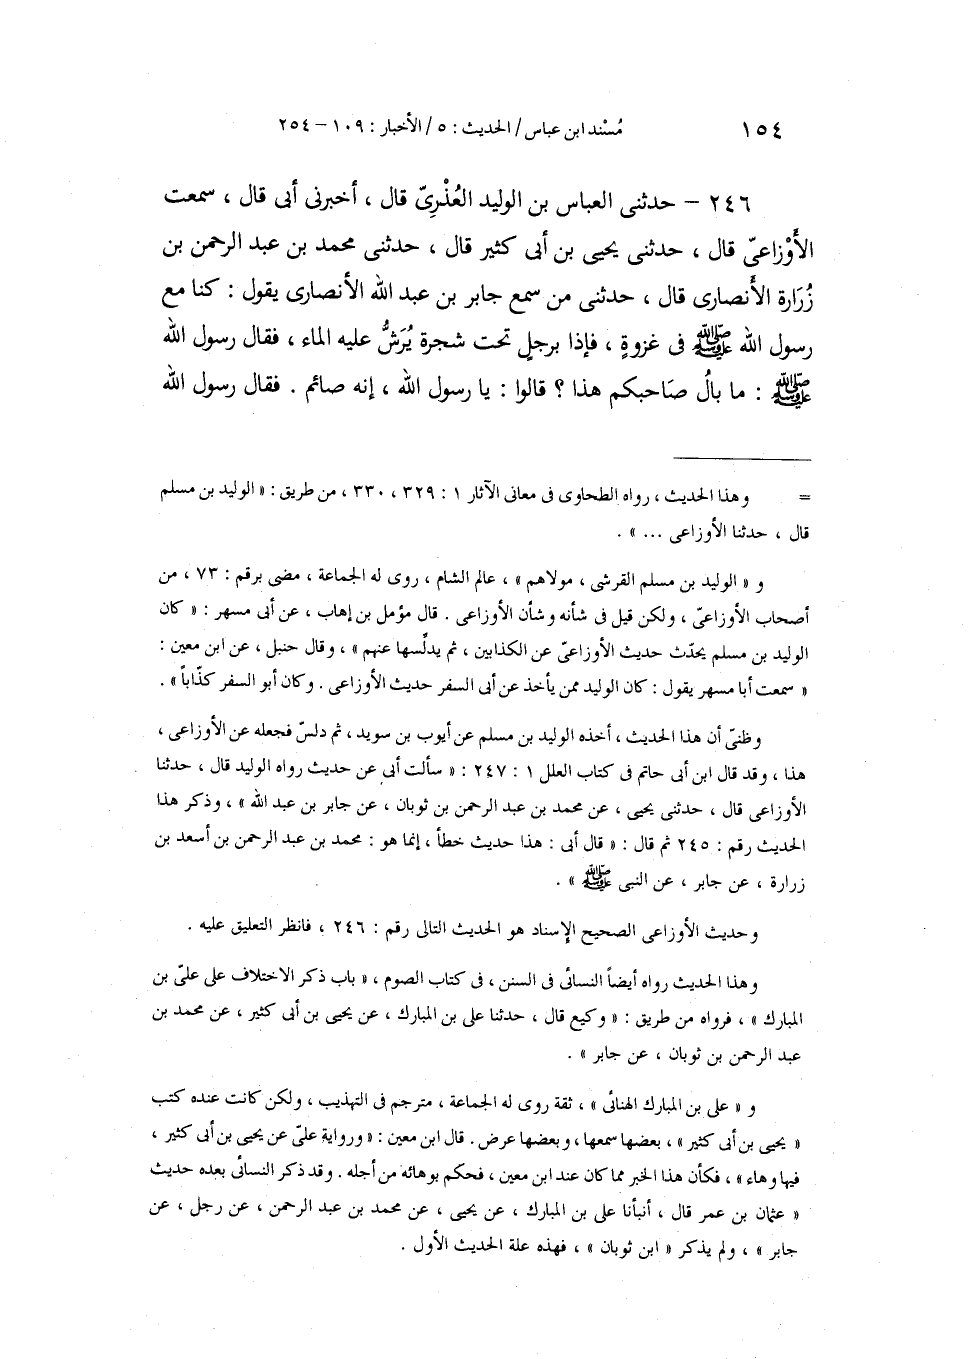 ١٥٤ مُسْند ابن عباس / الحديث : ٥ / الأخبار : ١٠٩ – ٢٥٤
٢٤٦ – حدثنى العباس بن الوليد العُذْرِىّ قال ، أخبرنى أبى قال ، سمعت
الأَوْزاعىّ قال ، حدثنى يحيى بن أبى كثير قال ، حدثنى محمد بن عبد الرحمن بن
زُرَارة الأَنصارى قال ، حدثنى من سمع جابر بن عبد الله الأنصارى يقول : كنا مع
رسول الله ﷺ فى غزوةٍ ، فإذا برجلٍ تحت شجرة يُرَشُّ عليه الماء ، فقال رسول الله
ﷺ : ما بالُ صَاحبكم هذا ؟ قالوا : يا رسول الله ، إنه صائم . فقال رسول الله
= وهذا الحديث ، رواه الطحاوى فى معانى الآثار ١ : ٣٢٩ ، ٣٣٠ ، من طريق : « الوليد بن مسلم
قال ، حدثنا الأوزاعى ... » .
و « الوليد بن مسلم القرشى ، مولاهم » ، عالم الشام ، روى له الجماعة ، مضى برقم : ٧٣ ، من
أصحاب الأوزاعىّ ، ولكن قيل فى شأنه وشأن الأوزاعى . قال مؤمل بن إهاب ، عن أبى مسهر : « كان
الوليد بن مسلم يحدّث حديث الأوزاعىّ عن الكذابين ، ثم يدلِّسها عنهم » ، وقال حنبل ، عن ابن معين :
« سمعت أبا مسهر يقول : كان الوليد ممن يأخذ عن أبى السفر حديث الأوزاعى . وكان أبو السفر كذّاباً » .
وظنىّ أن هذا الحديث ، أخذه الوليد بن مسلم عن أيوب بن سويد ، ثم دلسّ فجعله عن الأوزاعى ،
هذا ، وقد قال ابن أبى حاتم فى كتاب العلل ١ : ٢٤٧ : « سألت أبى عن حديث رواه الوليد قال ، حدثنا
الأوزاعى قال ، حدثنى يحيى ، عن محمد بن عبد الرحمن بن ثوبان ، عن جابر بن عبد الله » ، وذكر هذا
الحديث رقم : ٢٤٥ ثم قال : « قال أبى : هذا حديث خطأ ، إنما هو : محمد بن عبد الرحمن بن أسعد بن
زرارة ، عن جابر ، عن النبى ﷺ » .
وحديث الأوزاعى الصحيح الإسناد هو الحديث التالى رقم : ٢٤٦ ، فانظر التعليق عليه .
وهذا الحديث رواه أيضاً النسائى فى السنن ، فى كتاب الصوم ، « باب ذكر الاختلاف على علىّ بن
المبارك » ، فرواه من طريق : « وكيع قال ، حدثنا على بن المبارك ، عن يحيى بن أبى كثير ، عن محمد بن
عبد الرحمن بن ثوبان ، عن جابر » .
و « على بن المبارك الهنائى » ، ثقة روى له الجماعة ، مترجم فى التهذيب ، ولكن كانت عنده كتب
« يحيى بن أبى كثير » ، بعضها سمعها ، وبعضها عرض . قال ابن معين : « ورواية علىّ عن يحيى بن أبى كثير ،
فيها وهاء » ، فكأن هذا الخبر مما كان عند ابن معين ، فحكم بوهائه من أجله . وقد ذكر النسائى بعده حديث
« عثمان بن عمر قال ، أنبأنا على بن المبارك ، عن يحيى ، عن محمد بن عبد الرحمن ، عن رجل ، عن
جابر » ، ولم يذكر « ابن ثوبان » ، فهذه علة الحديث الأول .